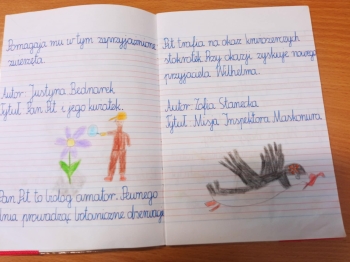 Pomagają mu w tym zaprzyjaźnione
zwierzęta.
Autor: Justyna Bednarek
Tytuł: Pan Pit i jego kuratek.
Pan Pit to biolog amator. Pewnego
dnia prowadząc botaniczne obserwacje
Pit trafia na okaz
stokrotek. Przy okazji zyskuje nowego
przyjaciela Wilhelma.
Autor: Zofia Stanecka
Tytuł: Misja Inspektora Maskonura